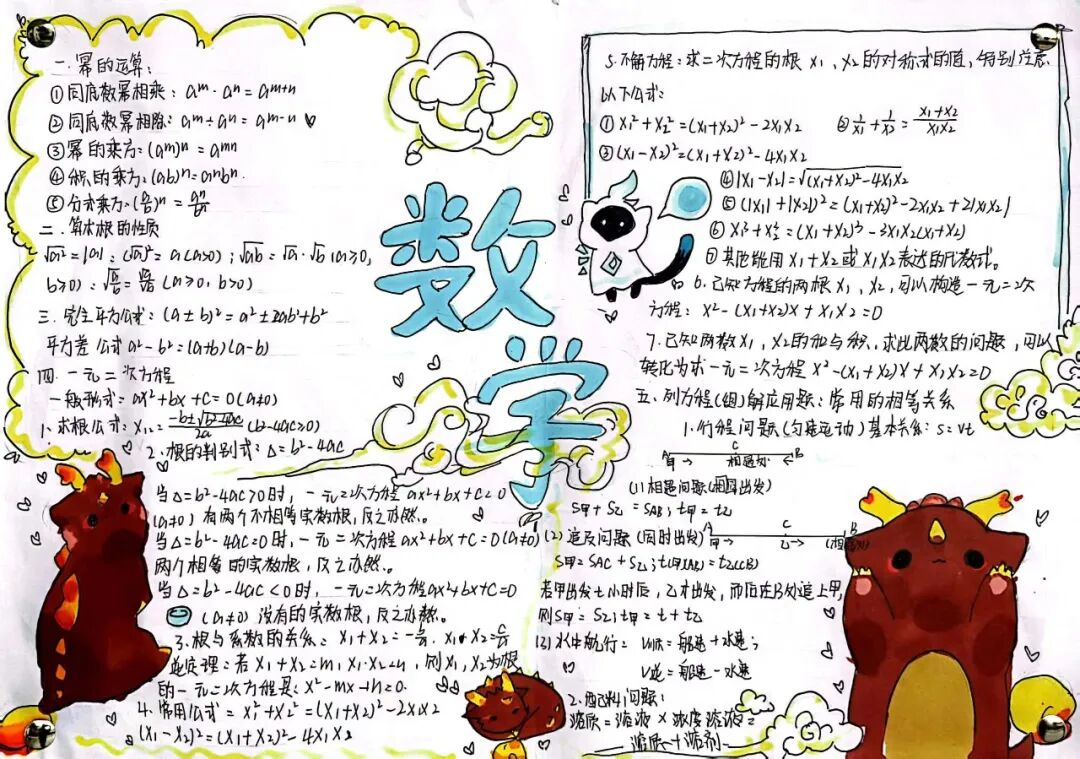 一.幂的运算:
①同底数幂相乘: aᵐ·aⁿ=aᵐ⁺ⁿ
②同底数幂相除: aᵐ÷aⁿ=aᵐ⁻ⁿ
③幂的乘方:(aᵐ)ⁿ=aᵐⁿ
④积的乘方:(ab)ⁿ=aⁿbⁿ
⑤分式乘方:(a/b)ⁿ=aⁿ/bⁿ
二.算术根的性质
√a²=|a|;(√a)²=a(a≥0);√ab=√a·√b(a≥0,
b≥0);√a/b=√a/√b(a≥0,b>0)
三.完全平方公式:(a±b)²=a²±2ab+b²
平方差公式a²-b²=(a+b)(a-b)
四.一元二次方程
一般形式=ax²+bx+c=0(a≠0)
1.求根公式:X₁,₂=(-b±√b²-4ac)/2a (b²-4ac≥0)
2.根的判别式:Δ=b²-4ac
当Δ=b²-4ac>0时,一元二次方程ax²+bx+c=0
(a≠0)有两个不相等实数根,反之亦然。
当Δ=b²-4ac=0时,一元二次方程ax²+bx+c=0(a≠0)
两个相等的实数根,反之亦然。
当Δ=b²-4ac<0时,一元二次方程ax²+bx+c=0
(a≠0)没有的实数根,反之亦然。
3.根与系数的关系:X₁+X₂=-b/a, X₁·X₂=c/a
逆定理:若X₁+X₂=m,X₁·X₂=n,则X₁,X₂为根
的一元二次方程是:X²-mx+n=0.
4.常用公式=X₁²+X₂²=(X₁+X₂)²-2X₁X₂
(X₁-X₂)²=(X₁+X₂)²-4X₁X₂
数
学
5.不解方程:求二次方程的根X₁、X₂的对称式的值,特别注意
以下公式:
①X₁²+X₂²=(X₁+X₂)²-2X₁X₂ ②1/X₁+1/X₂=(X₁+X₂)/X₁X₂
③(X₁-X₂)²=(X₁+X₂)²-4X₁X₂
④|X₁-X₂|=√(X₁+X₂)²-4X₁X₂
⑤(|X₁|+|X₂|)²=(X₁+X₂)²-2X₁X₂+2|X₁X₂|
⑥X₁³+X₂³=(X₁+X₂)³-3X₁X₂(X₁+X₂)
⑦其他能用X₁+X₂或X₁X₂表达的代数式。
6.已知方程的两根X₁、X₂,可以构造一元二次
方程:X²-(X₁+X₂)X+X₁X₂=0
7.已知两数X₁、X₂的和与积,求此两数的问题,可以
转化为求一元二次方程X²-(X₁+X₂)X+X₁X₂=0
五.列方程(组)解应用题:常用的相等关系
1.行程问题(匀速运动)基本关系:s=vt
A C B
甲→ 相遇处 ←
(1)相遇问题(同时出发)
S甲+S乙=SAB;t甲=t乙
(2)追及问题(同时出发)
A C B
甲→ 乙→ (相遇处)
S甲=SAC+S乙;t甲(AB)=t乙(CB)
若甲出发t小时后,乙才出发,而后在B处追上甲,
则S甲=S乙;t甲=t+t乙
(3)水中航行: V顺=船速+水速;
V逆=船速-水速
2.配料问题:
溶质=溶液×浓度 溶液=
溶质+溶剂